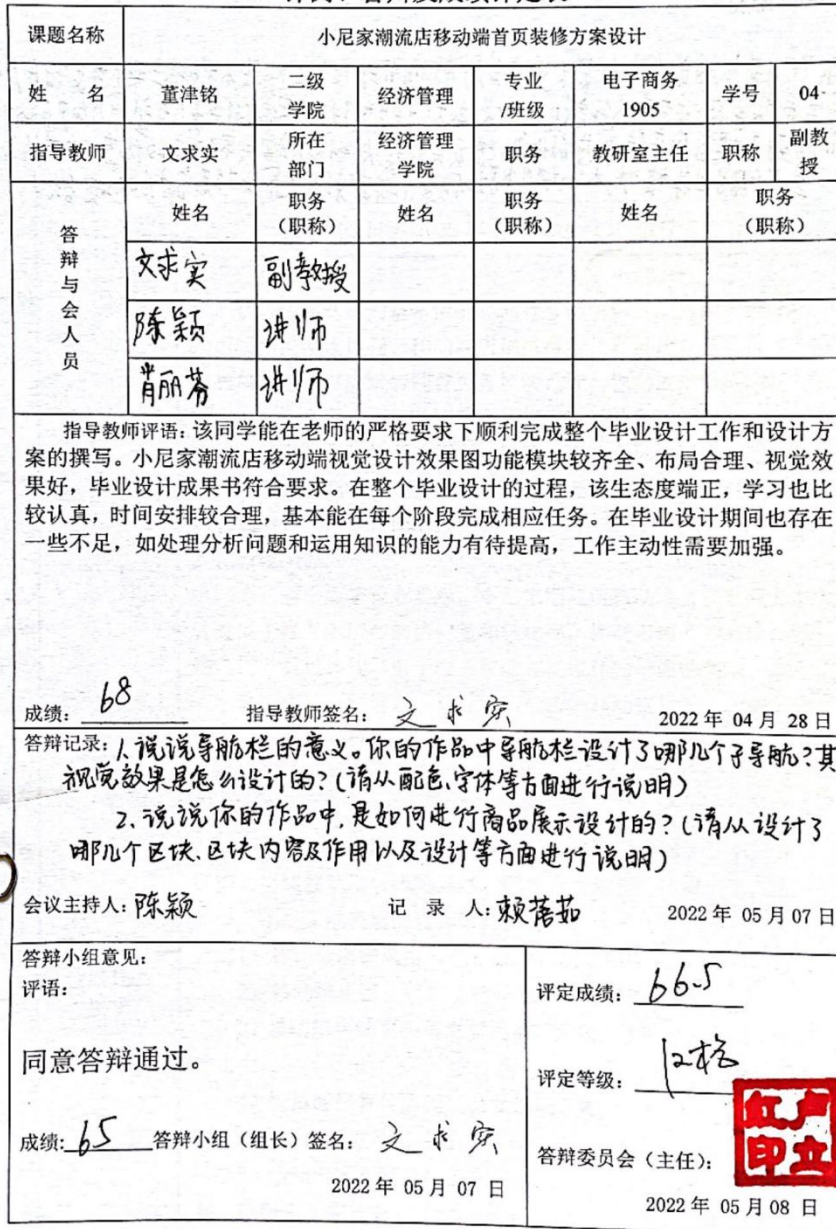 课题名称 小尼家潮流店移动端首页装修方案设计
姓 名 董津铭 二级学院 经济管理 专业/班级 电子商务1905 学号 04
指导教师 文求实 所在部门 经济管理学院 职务 教研室主任 职称 副教授
答辩与会人员 姓名 职务（职称） 姓名 职务（职称） 姓名 职务（职称）
文求实 副教授
陈颖 讲师
肖丽芬 讲师
指导教师评语：该同学能在老师的严格要求下顺利完成整个毕业设计工作和设计方
案的撰写。小尼家潮流店移动端视觉设计效果图功能模块较齐全、布局合理、视觉效
果好，毕业设计成果书符合要求。在整个毕业设计的过程，该生态度端正，学习也比
较认真，时间安排较合理，基本能在每个阶段完成相应任务。在毕业设计期间也存在
一些不足，如处理分析问题和运用知识的能力有待提高，工作主动性需要加强。
成绩：68 指导教师签名：文求实 2022 年 04 月 28 日
答辩记录：1.说说导航栏的意义。你的作品中导航栏设计了哪几个子导航？其
视觉效果是怎么设计的？（请从配色、字体等方面进行说明）
2.说说你的作品中，是如何进行商品展示设计的？（请从设计了
哪几个区块、区块内容及作用以及设计等方面进行说明）
会议主持人：陈颖 记 录 人：赖茹 2022 年 05 月 07 日
答辩小组意见：
评语：
同意答辩通过。
成绩：65 答辩小组（组长）签名：文求实
2022 年 05 月 07 日
评定成绩：66.5
评定等级：及格
答辩委员会（主任）：
2022 年 05 月 08 日